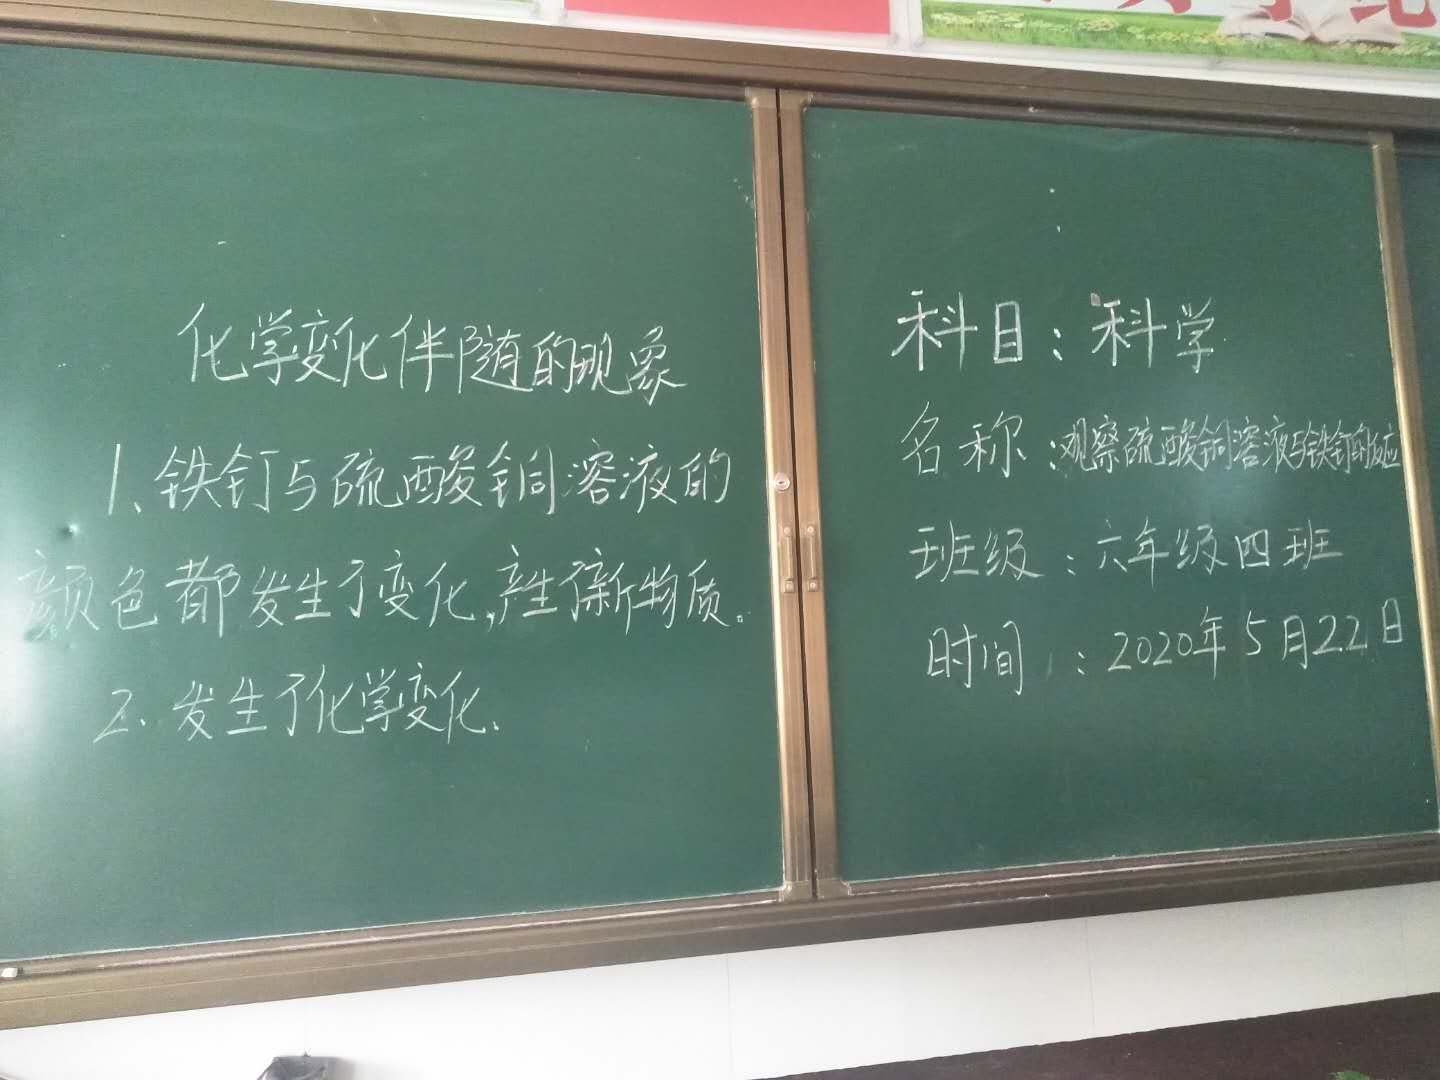 化学变化伴随的现象
1、铁钉与硫酸铜溶液的
颜色都发生了变化,产生了新物质。
2、发生了化学变化、
科目：科学
名称：观察硫酸铜溶液与铁钉的反应
班级：六年级四班
时间：2020年5月22日